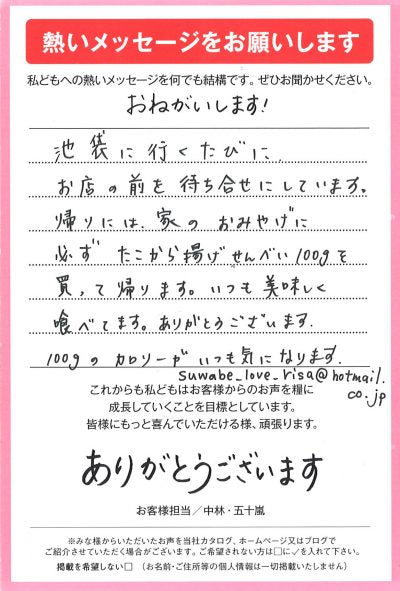 熱いメッセージをお願いします
私どもへの熱いメッセージを何でも結構です。ぜひお聞かせください。
おねがいします!
池袋に行くたびに、
お店の前を待ち合せにしています。
帰りには、家のおみやげに
必ず たこから揚げせんべい100gを
買って帰ります。いつも美味しく
喰べてます。ありがとうございます.
100gのカロリーがいつも気になります.
suwabe_love_risa@hotmail.
co.jp
これからも私どもはお客様からのお声を糧に
成長していくことを目標としています。
皆様にもっと喜んでいただける様、頑張ります。
ありがとうございます
お客様担当／中林・五十嵐
※みな様からいただいたお声を当社カタログ、ホームページ又はブログで
ご紹介させていただく場合がございます。ご希望されない方は□に✓を入れて下さい。
掲載を希望しない□ （お名前・ご住所等の個人情報は一切掲載いたしません）